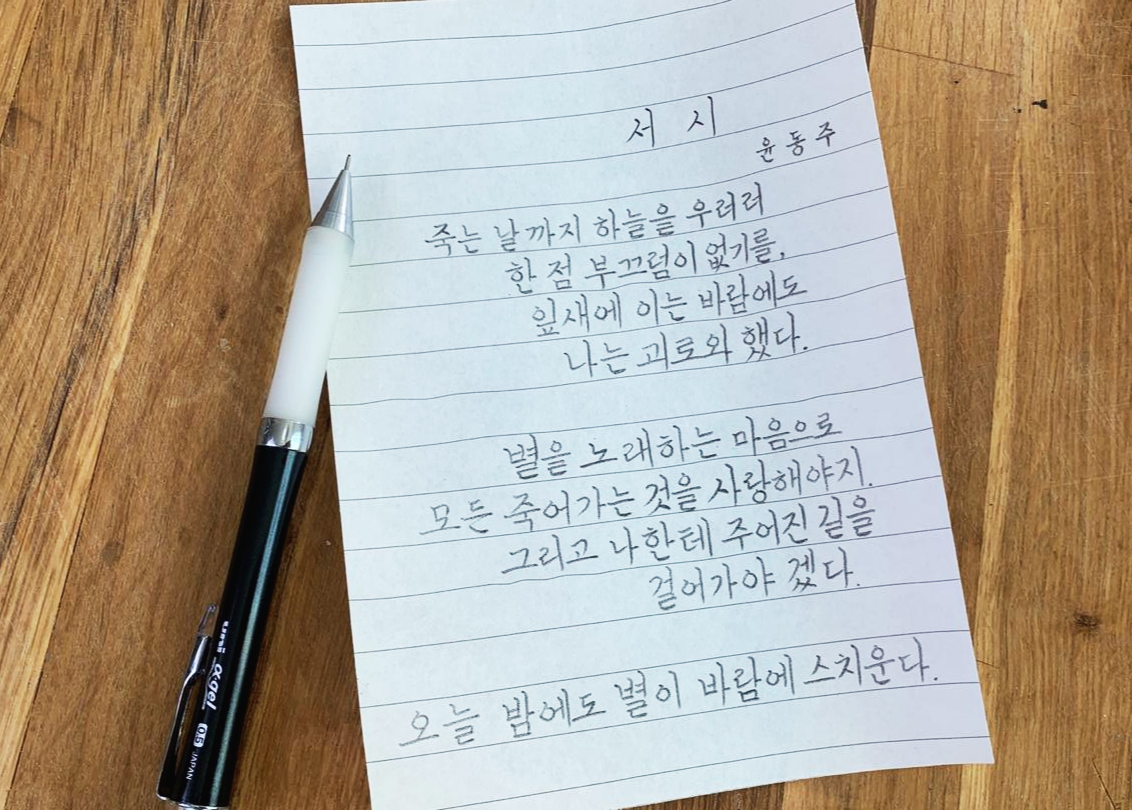 서 시
윤동주
죽는 날까지 하늘을 우러러
한 점 부끄럼이 없기를,
잎새에 이는 바람에도
나는 괴로와 했다.
별을 노래하는 마음으로
모든 죽어가는 것을 사랑해야지.
그리고 나한테 주어진 길을
걸어가야 겠다.
오늘 밤에도 별이 바람에 스치운다.
uni α·gel 0.5 JAPAN